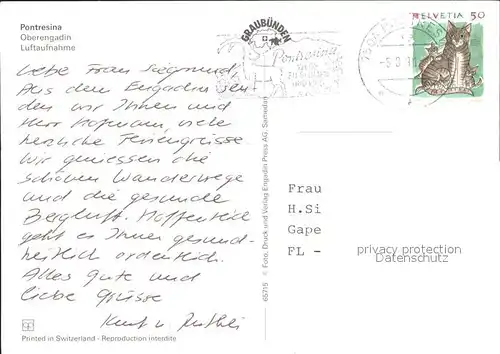 Pontresina
Oberengadin
Luftaufnahme
Liebe Frau Siegmund
Aus dem Engadin sen-
den wir Ihnen und
Herr Hofmann viele
herzliche Feriengrüsse.
Wir geniessen die
schönen Wanderwege
und die gesunde
Bergluft. Hoffentlich
geht es Ihnen gesund-
heitlich ordentlich.
Alles gute und
liebe Grüsse
Kurt u.
Printed in Switzerland - Reproduction interdite
65715 © Foto, Druck und Verlag Engadin Press AG, Samedan
GRAUBÜNDEN
Pontresina
HELVETIA 50
Frau
H.Si
Gape
FL -
privacy protection
Datenschutz